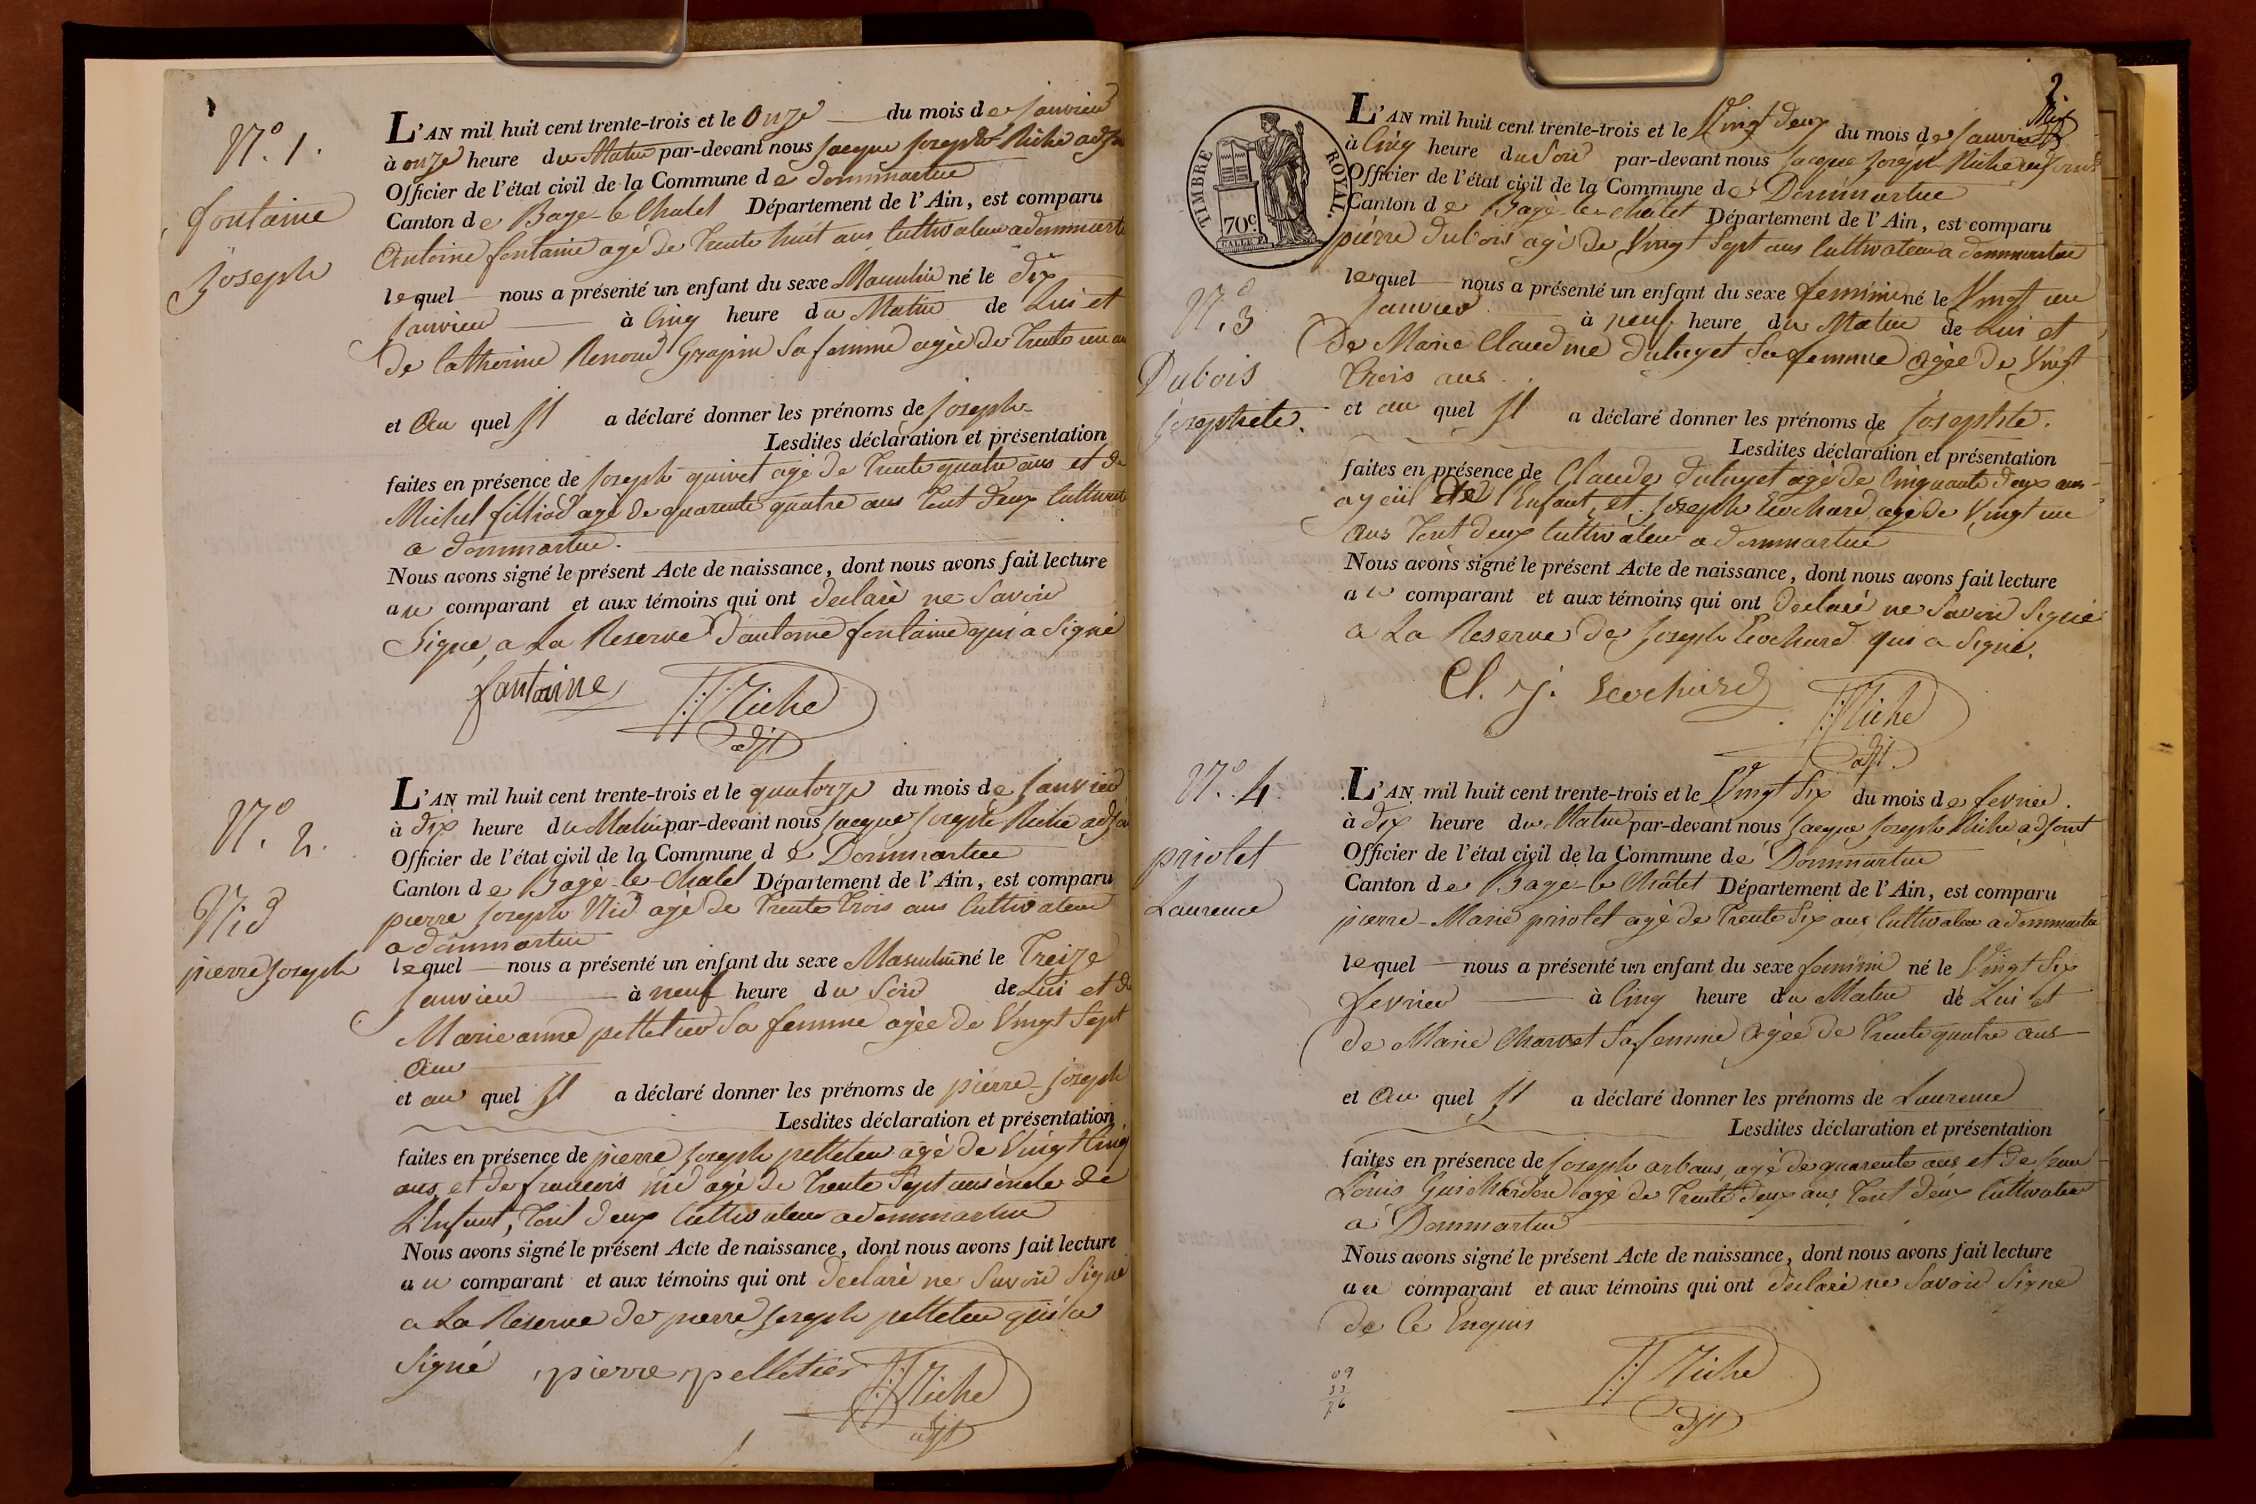 N.o 1.
fontaine
Joseph
L'AN mil huit cent trente-trois et le Onze du mois de Janvier
à onze heure du Matin par-devant nous Jacque Joseph Riche adjt
Officier de l'état civil de la Commune de dommartin
Canton de Bagé-le-Chatel Département de l'Ain, est comparu
Antoine fontaine agé de Trente huit ans Cultivateur a dommartin
lequel nous a présenté un enfant du sexe Masculin né le dix
Janvier à Cinq heure du Matin de Lui et
de Catherine Renoud Grapin Sa femme agée de Trente un an
et Au quel Il a déclaré donner les prénoms de Joseph
Lesdites déclaration et présentation
faites en présence de Joseph quivet agé de Trente quatre ans et de
Michel filliod agé de quarente quatre ans Tout deux Cultivat
a dommartin.
Nous avons signé le présent Acte de naissance, dont nous avons fait lecture
au comparant et aux témoins qui ont declaré ne Savoir
Signe, a La Reserve d'antoine fontaine qui a Signé
fontaine JJ Riche
adjt
N.o 2.
Nid
pierre Joseph
L'AN mil huit cent trente-trois et le quatorze du mois de Janvier
à dix heure du Matin par-devant nous Jacque Joseph Riche adjt
Officier de l'état civil de la Commune de Dommartin
Canton de Bagé-le-Chatel Département de l'Ain, est comparu
pierre Joseph Nid agé de Trente Trois ans Cultivateur
a dommartin
lequel nous a présenté un enfant du sexe Masculin né le Treize
Janvier à neuf heure du Soir de Lui et de
Marie anne pelletier Sa femme agée de Vingt Sept
ans
et au quel Il a déclaré donner les prénoms de pierre-Joseph
Lesdites déclaration et présentation
faites en présence de pierre Joseph pelletier agé de Vingt Cinq
ans, et de francois nid agé de Trente Sept ans oncle de
L'Enfant, Tout deux Cultivateur a dommartin
Nous avons signé le présent Acte de naissance, dont nous avons fait lecture
au comparant et aux témoins qui ont declaré ne Savoir Signé
a La Reserve de pierre Joseph pelletier qui a
Signé pierre pelletier JJ Riche
adjt
2
TIMBRE ROYAL.
70c
N.o 3
Dubois
Josephete.
L'AN mil huit cent trente-trois et le Vingt deux du mois de Janvier
à Cinq heure du Soir par-devant nous Jacque Joseph Riche adjoint
Officier de l'état civil de la Commune de Dommartin
Canton de Bagé-le-Châtel Département de l'Ain, est comparu
pierre dubois agé de Vingt Sept ans Cultivateur a dommartin
lequel nous a présenté un enfant du sexe feminin né le Vingt un
Janvier à neuf heure du Matin de Lui et
de Marie Claudine dutuyet Sa femme agée de Vingt
Trois ans.
et au quel Il a déclaré donner les prénoms de Josephte.
Lesdites déclaration et présentation
faites en présence de Claude dutuyet agé de Cinquante deux ans
ayeül de l'Enfant, et Joseph Cochard agé de Vingt un
ans Tout deux Cultivateur a dommartin
Nous avons signé le présent Acte de naissance, dont nous avons fait lecture
au comparant et aux témoins qui ont declaré ne Savoir Signé
a La Reserve de Joseph Cochard qui a Signé.
Cl. J. Cochard JJ Riche
adjt.
N.o 4
priolet
Laurence
L'AN mil huit cent trente-trois et le Vingt Six du mois de fevrier.
à dix heure du Matin par-devant nous Jacque Joseph Riche adjoint
Officier de l'état civil de la Commune de Dommartin
Canton de Bagé-le-Châtel Département de l'Ain, est comparu
pierre-Marie priolet agé de Trente Six ans Cultivateur a dommartin
lequel nous a présenté un enfant du sexe feminin né le Vingt Six
fevrier à Cinq heure du Matin de Lui et
de Marie Charvet Sa femme agée de Trente quatre ans
et Au quel Il a déclaré donner les prénoms de Laurence
Lesdites déclaration et présentation
faites en présence de Joseph arbans, agé de quarente ans et de Jean
Louis Guichardon agé de Trente deux ans, Tout deux Cultivateur
a Dommartin
Nous avons signé le présent Acte de naissance, dont nous avons fait lecture
au comparant et aux témoins qui ont declaré ne Savoir Signe
de Ce Enquis
JJ Riche
adjt